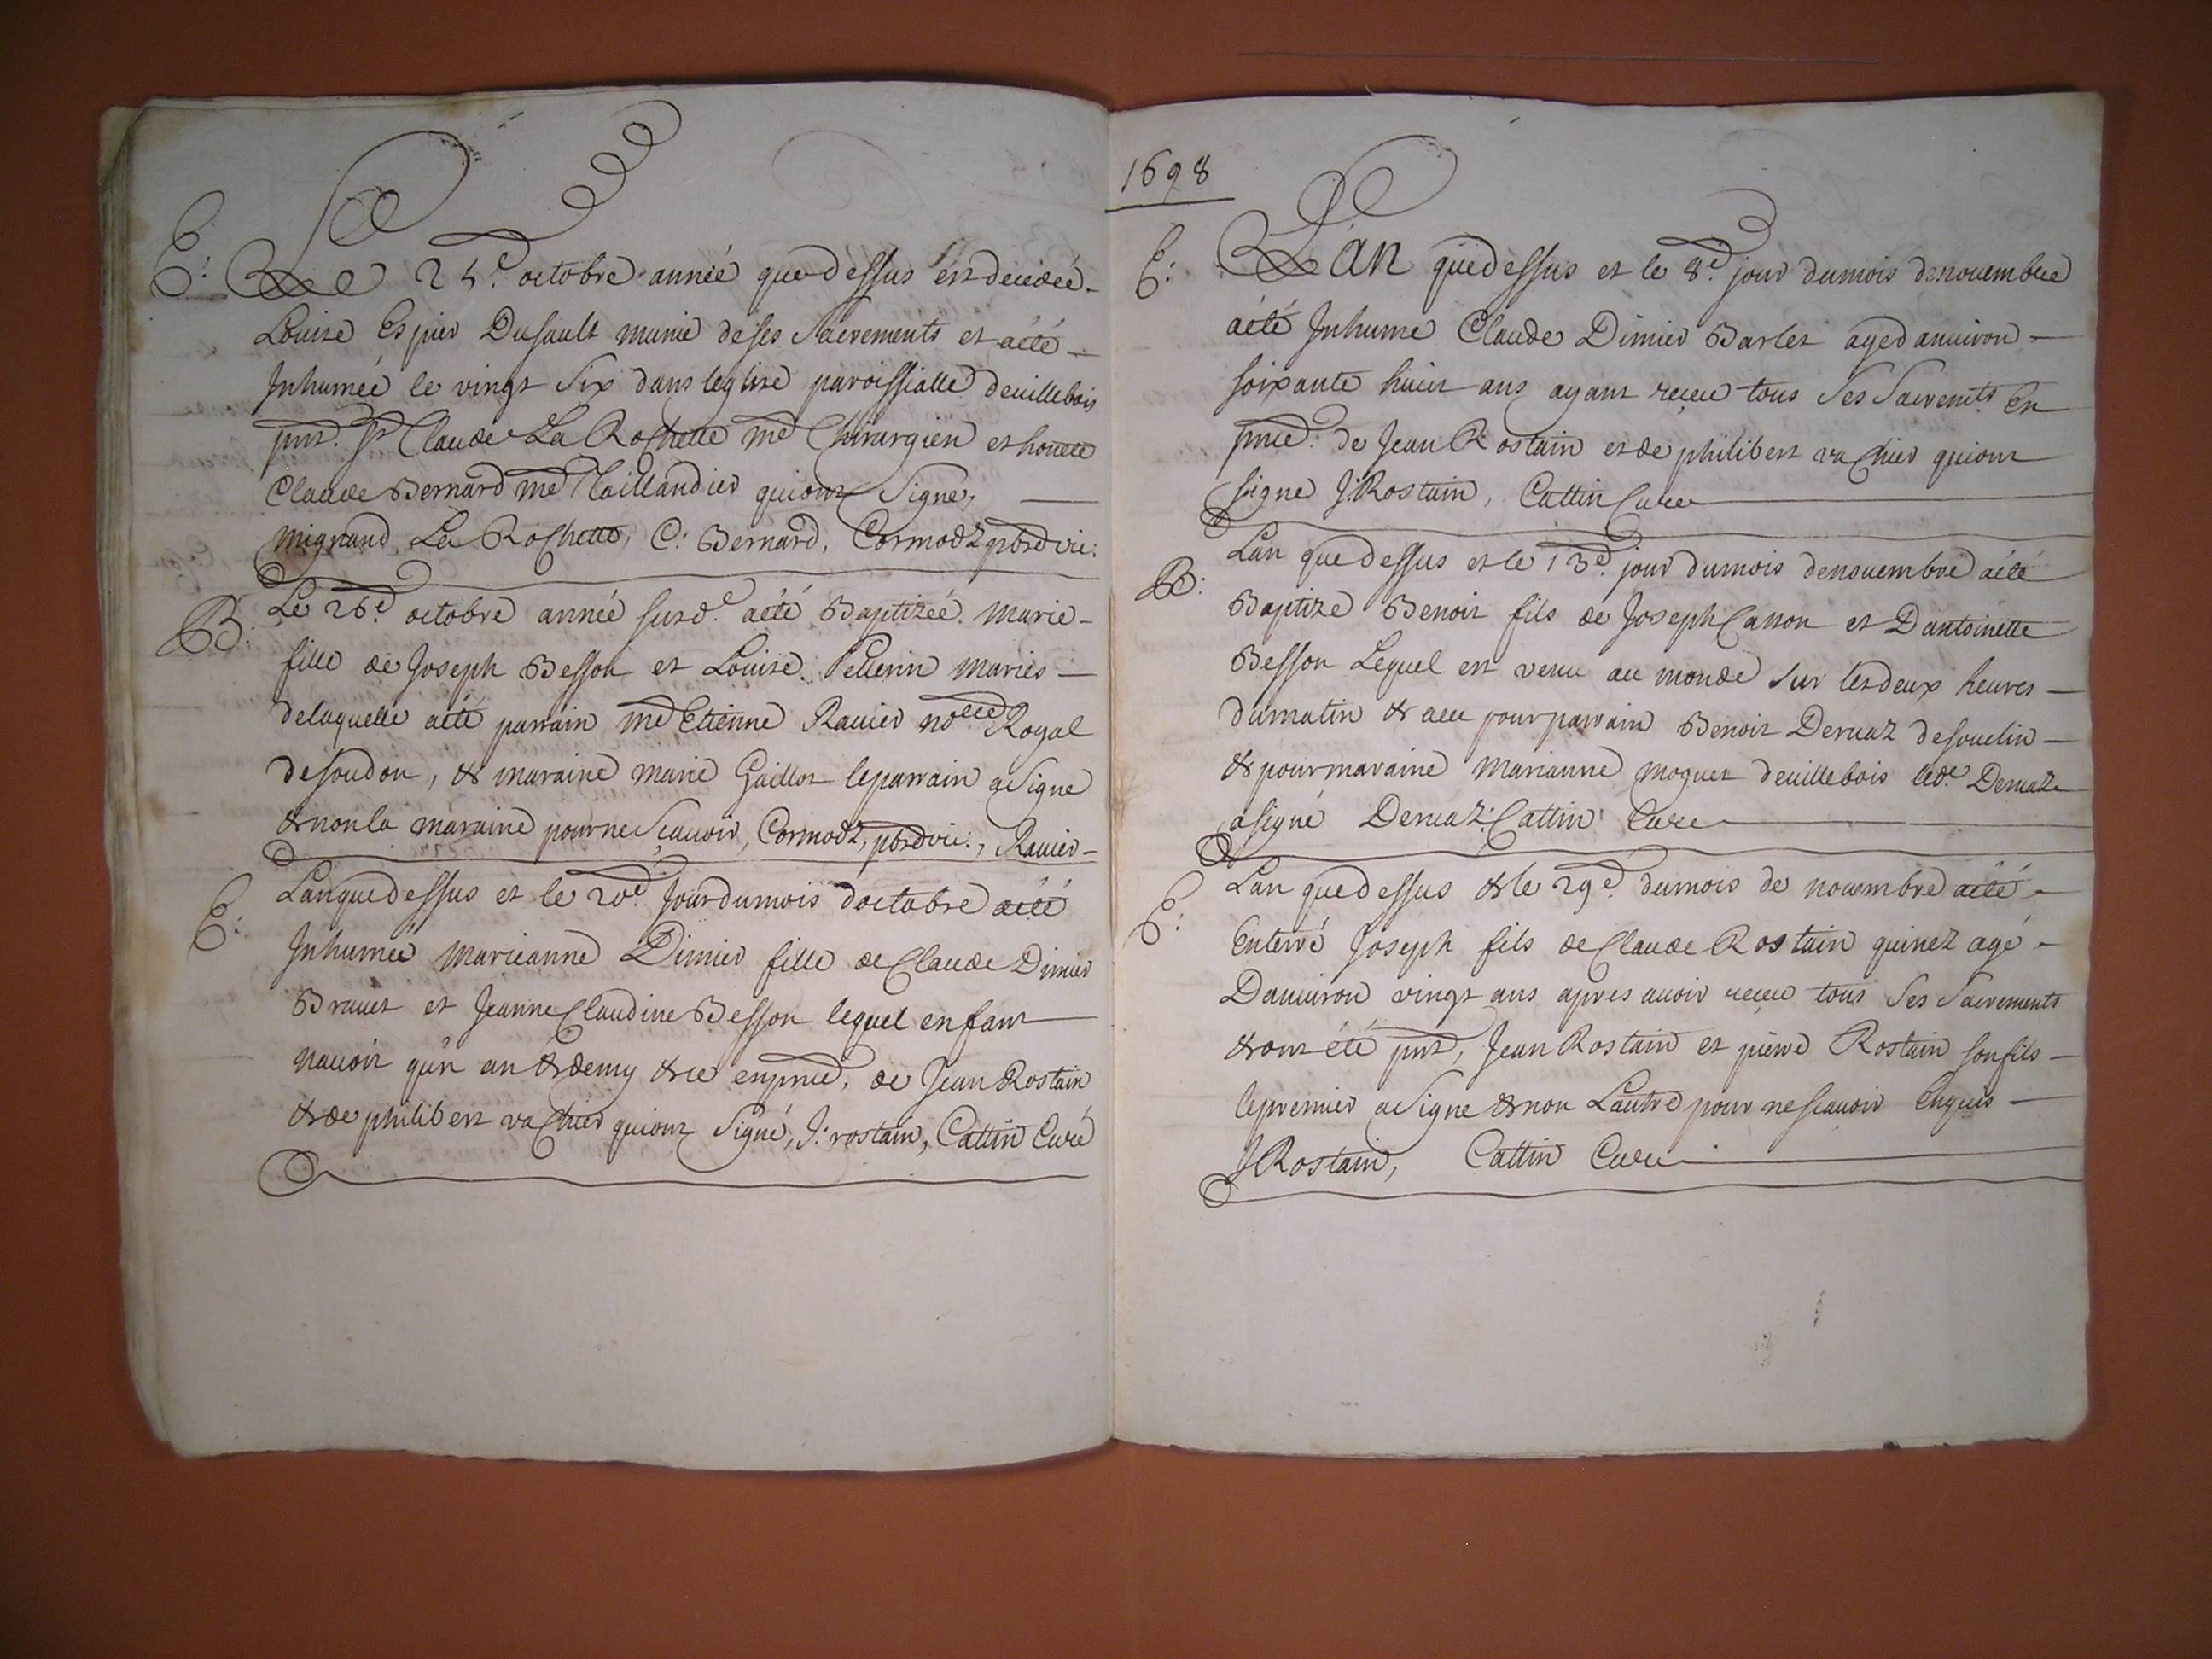 E: Le 25e. octobre année que dessus est decedeé
Louise Espier Dusault munie de ses Sacrements et a été
Inhumeé le vingt Six dans leglise paroissialle deuillebois
pnt. Sr Claude La Rochette me Chirurgien et honete
Claude Bernard me Taillandier qui ont Signe,
mignand La Rochette, C: Bernard, Cormodz pbre vic:
B: Le 26e. octobre année susd.e a été Baptizeé Marie
fille de Joseph Besson et Louise Pellerin Mariés
delaquelle a été parrain me Etienne Rauier no.re Royal
desoudon, & maraine marie Gaillot le parrain a Signe
& non la maraine pour ne Sçauoir, Cormodz, pbre vic:, Rauier
E: Lan que dessus et le 20e. Jour du mois doctobre a été
Inhumeé marieanne Dimier fille de Claude Dimier
Brauet et Jeanne Claudine Besson lequel enfant
nauoit qun an & demy & ce en pnce, de Jean Rostain
& de philibert vachier qui ont Signé, J: rostain, Cattin Curé
1698
E: Lan que dessus et le 8e. jour du mois denouembre
a été Inhumé Claude Dimier Barlet agé danuiron
soixante huit ans ayant reçeu tous Ses Sacremts. En
pnce: de Jean Rostain et de philibert vachier qui ont
signe J: Rostain, Cattin Cure
B: Lan que dessus et le 13e. jour du mois denouembre a été
Baptize Benoit fils de Joseph Canon et Dantoinette
Besson Lequel est venu au monde Sur les deux heures
du matin & a eu pour parrain Benoit Deruaz desouclin
& pour maraine Marianne moguet deuillebois led.e Deruaz
a signé Deruaz: Cattin Cure
E: Lan que dessus & le 29e. du mois de nouembre a été
Enterré Joseph fils de Claude Rostain quinet agé
Danuiron vingt ans apres auoir reçeu tous Ses Sacrements
& ont été pnt, Jean Rostain et pierre Rostain son fils
le premier a Signe & non Lautre pour ne scauoir Enquis
J Rostain, Cattin Cure